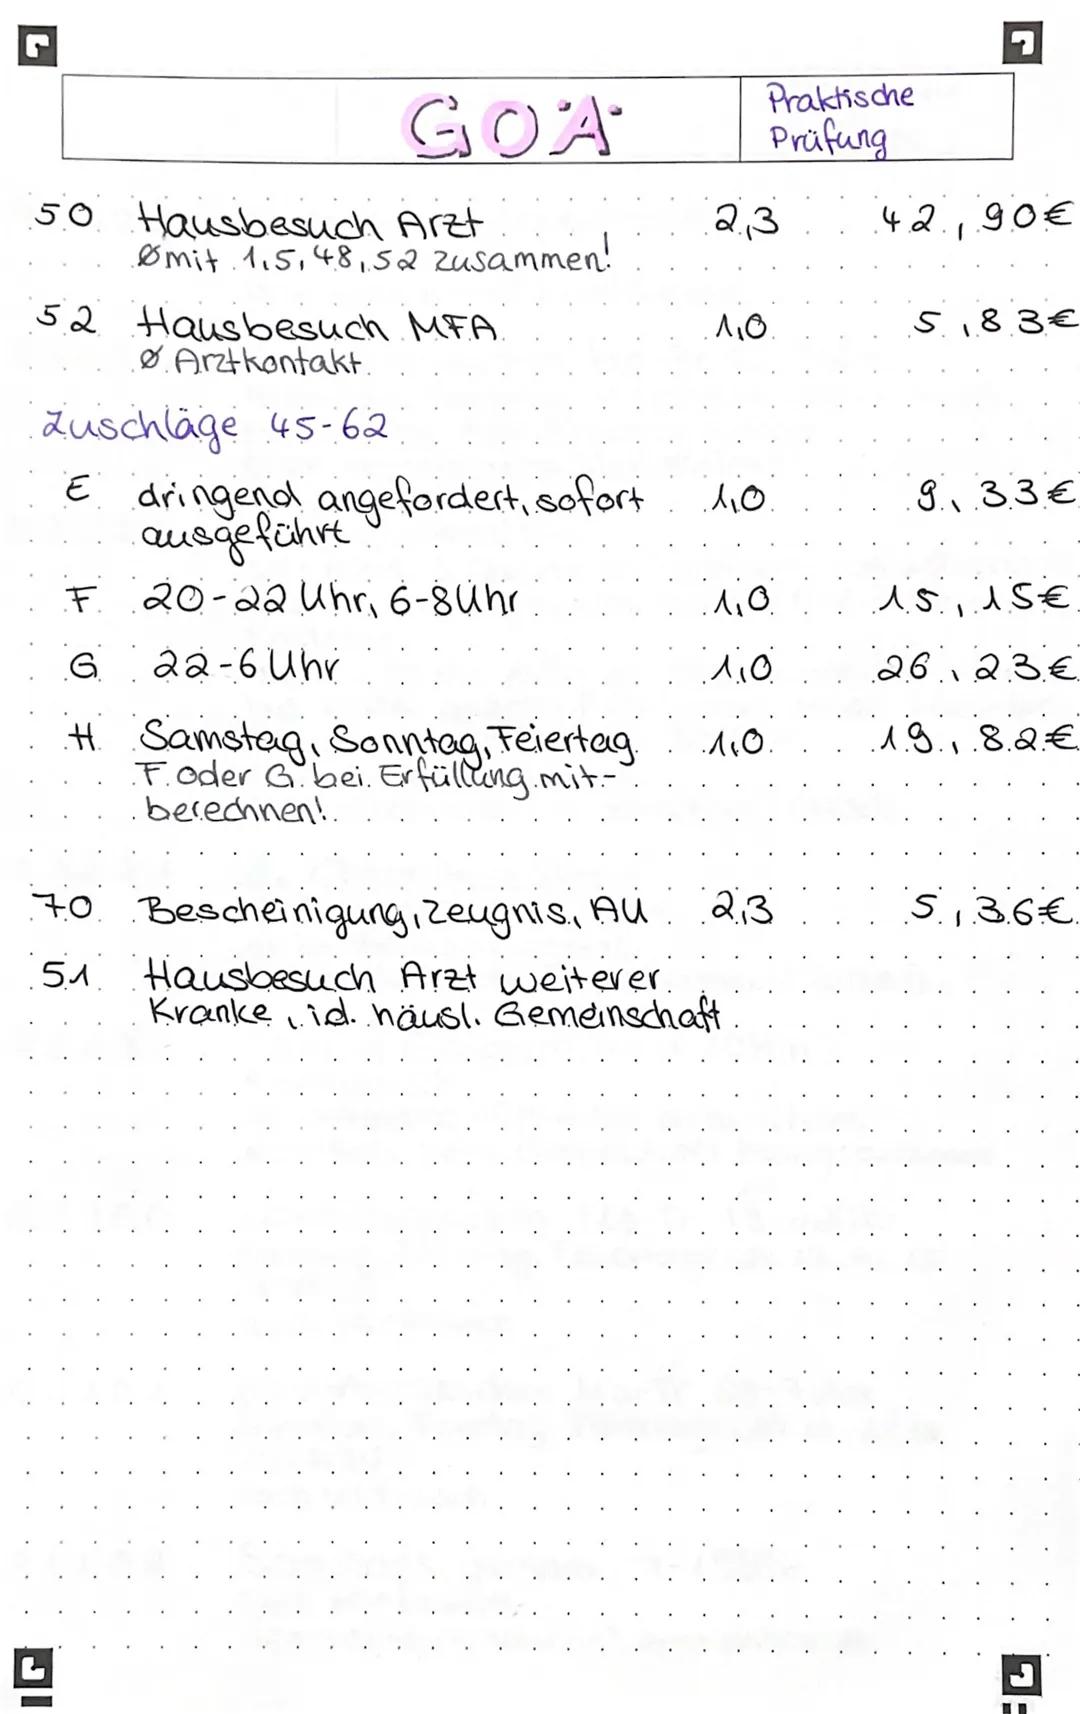 GOÄ
Praktische
Prüfung
50 Hausbesuch Arzt 2,3 42,90€
Ømit 1,5,48,52 zusammen!
52 Hausbesuch MFA 1,0 5,83€
Ø Arztkontakt
Zuschläge 45-62
E dringend angefordert, sofort 1,0 9,33€
ausgeführt
F 20-22 Uhr, 6-8Uhr 1,0 15,15€
G 22-6 Uhr 1,0 26,23€
H Samstag, Sonntag, Feiertag 1,0 19,82€
F oder G bei Erfüllung mit-
berechnen!
70 Bescheinigung, Zeugnis, AU 2,3 5,36€
51 Hausbesuch Arzt weiterer
Kranke, i.d. häusl. Gemeinschaft